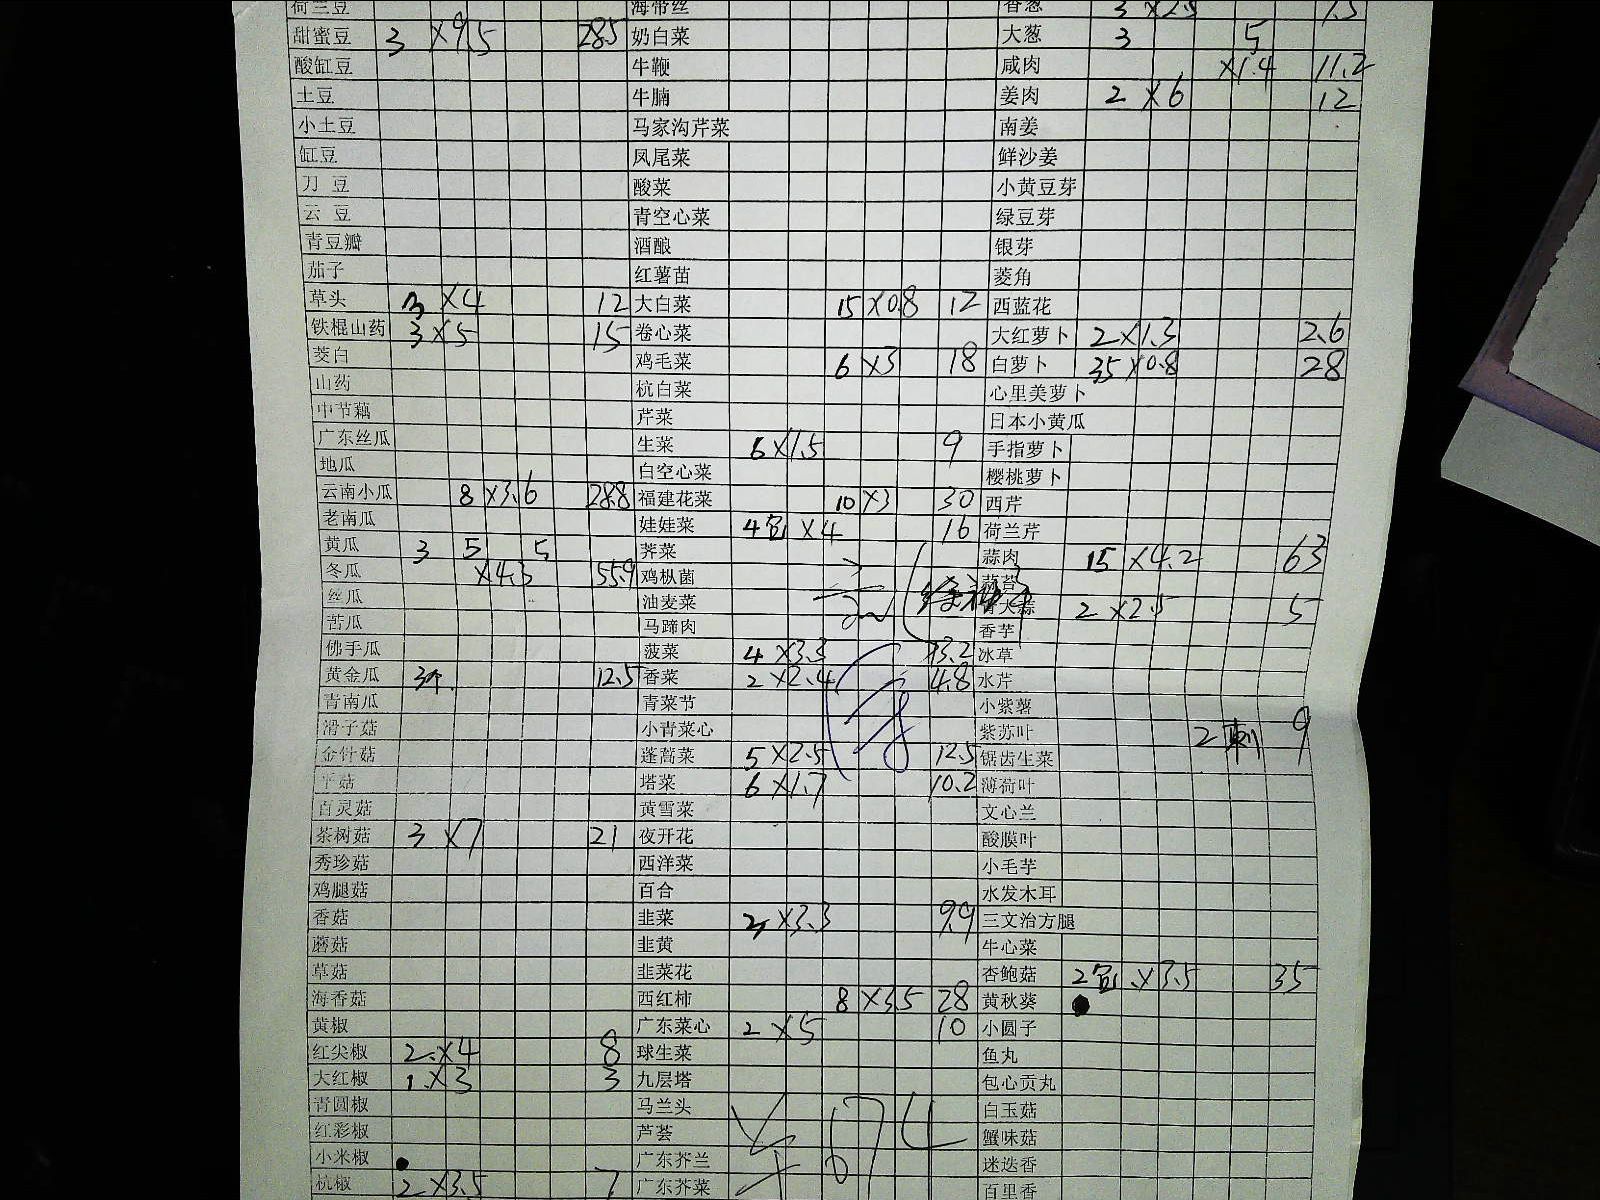 荷兰豆 海带丝 香葱 3 ×2.5 7.5
甜蜜豆 3 ×9.5 28.5 奶白菜 大葱 3 5
酸缸豆 牛鞭 咸肉 ×1.4 11.2
土豆 牛腩 姜肉 2 ×6 12
小土豆 马家沟芹菜 南姜
缸豆 凤尾菜 鲜沙姜
刀 豆 酸菜 小黄豆芽
云 豆 青空心菜 绿豆芽
青豆瓣 酒酿 银芽
茄子 红薯苗 菱角
草头 3 ×4 12 大白菜 15 ×0.8 12 西蓝花
铁棍山药 3 ×5 15 卷心菜 大红萝卜 2 ×1.3 2.6
茭白 鸡毛菜 6 ×3 18 白萝卜 35 ×0.8 28
山药 杭白菜 心里美萝卜
中节藕 芹菜 日本小黄瓜
广东丝瓜 生菜 6 ×1.5 9 手指萝卜
地瓜 白空心菜 樱桃萝卜
云南小瓜 8 ×3.6 28.8 福建花菜 10 ×3 30 西芹
老南瓜 娃娃菜 4包 ×4 16 荷兰芹
黄瓜 3 5 5 荠菜 蒜肉 15 ×4.2 63
冬瓜 ×4.3 55.9 鸡枞菌 蒜苔
丝瓜 油麦菜 青大蒜 2 ×2.5 5
苦瓜 马蹄肉 香芋
佛手瓜 菠菜 4 ×3.3 13.2 冰草
黄金瓜 3个. 12.5 香菜 2 ×2.4 4.8 水芹
青南瓜 青菜节 小紫薯
滑子菇 小青菜心 紫苏叶 2 9
金针菇 蓬蒿菜 5 ×2.5 12.5 锯齿生菜
平菇 塔菜 6 ×1.7 10.2 薄荷叶
百灵菇 黄雪菜 文心兰
茶树菇 3 ×7 21 夜开花 酸膜叶
秀珍菇 西洋菜 小毛芋
鸡腿菇 百合 水发木耳
香菇 韭菜 3 ×3.3 9.9 三文治方腿
蘑菇 韭黄 牛心菜
草菇 韭菜花 杏鲍菇 2包 ×3.5 35
海香菇 西红柿 8 ×3.5 28 黄秋葵
黄椒 广东菜心 2 ×5 10 小圆子
红尖椒 2 ×4 8 球生菜 鱼丸
大红椒 1 ×3 3 九层塔 包心贡丸
青圆椒 马兰头 白玉菇
红彩椒 芦荟 蟹味菇
小米椒 广东芥兰 迷迭香
杭椒 2 ×3.5 7 广东芥菜 百里香